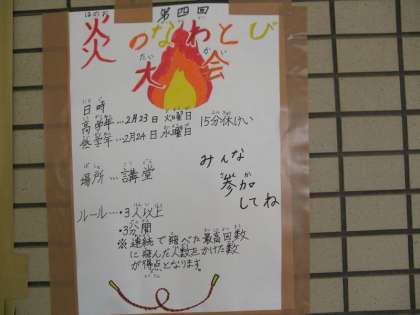 第四回
炎のなわとび
大会
日時
高学年…2月23日火曜日 15分休けい
全学年…2月24日水曜日
みんな
参加
してね
場所…講堂
ルール…・3人以上
・3分間
※連続で跳べた最高回数
に跳んだ人数をかけた数
が得点となります。